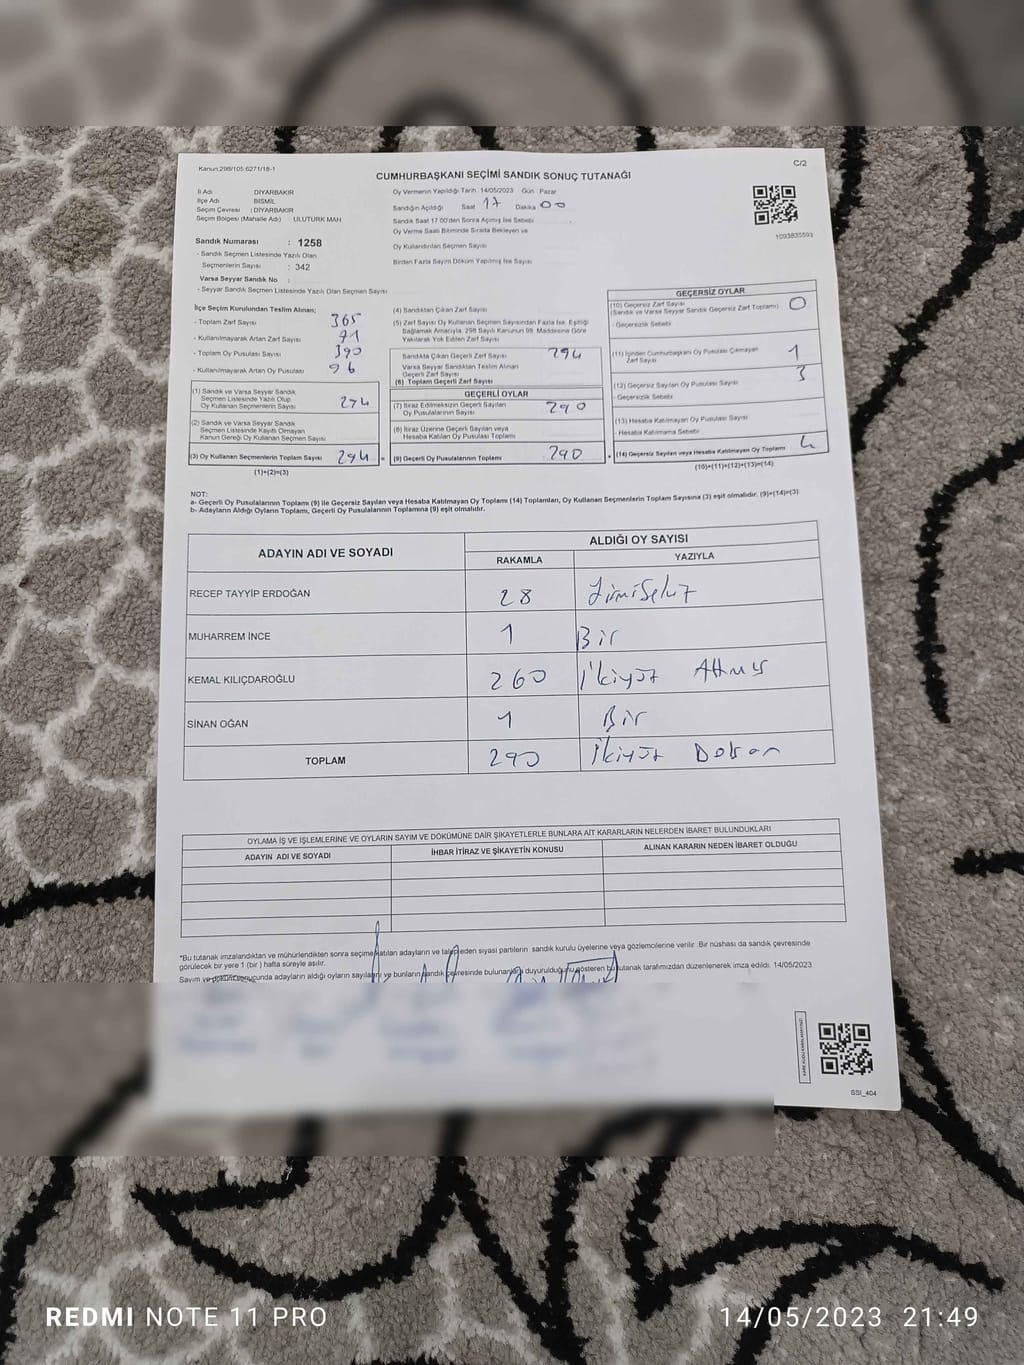 Kanun:298/105.6271/18-1
C/2
CUMHURBAŞKANI SEÇİMİ SANDIK SONUÇ TUTANAĞI
İl Adı DİYARBAKIR
İlçe Adı BİSMİL
Seçim Çevresi : DİYARBAKIR
Seçim Bölgesi (Mahalle Adı) : ULUTÜRK MAH
Oy Vermenin Yapıldığı Tarih :14/05/2023 Gün : Pazar
Sandığın Açıldığı Saat 17 Dakika 00
Sandık Saat 17:00'den Sonra Açılmış İse Sebebi
Oy Verme Saati Bitiminde Sırada Bekleyen ve
Oy Kullandırılan Seçmen Sayısı
Birden Fazla Sayım Döküm Yapılmış İse Sayısı
1093835593
Sandık Numarası : 1258
- Sandık Seçmen Listesinde Yazılı Olan
Seçmenlerin Sayısı : 342
Varsa Seyyar Sandık No :
- Seyyar Sandık Seçmen Listesinde Yazılı Olan Seçmen Sayısı
İlçe Seçim Kurulundan Teslim Alınan;
- Toplam Zarf Sayısı 365
- Kullanılmayarak Artan Zarf Sayısı 71
- Toplam Oy Pusulası Sayısı 390
- Kullanılmayarak Artan Oy Pusulası Sayısı 96
(1) Sandık ve Varsa Seyyar Sandık
Seçmen Listesinde Yazılı Olup
Oy Kullanan Seçmenlerin Sayısı 274
(2) Sandık ve Varsa Seyyar Sandık
Seçmen Listesinde Kayıtlı Olmayan
Kanun Gereği Oy Kullanan Seçmen Sayısı
(3) Oy Kullanan Seçmenlerin Toplam Sayısı 294 =
(1)+(2)=(3)
(4) Sandıktan Çıkan Zarf Sayısı
(5) Zarf Sayısı Oy Kullanan Seçmen Sayısından Fazla İse, Eşitliği
Sağlamak Amacıyla, 298 Sayılı Kanunun 98. Maddesine Göre
Yakılarak Yok Edilen Zarf Sayısı
Sandıkta Çıkan Geçerli Zarf Sayısı 294
Varsa Seyyar Sandıktan Teslim Alınan
Geçerli Zarf Sayısı
(6) Toplam Geçerli Zarf Sayısı
GEÇERLİ OYLAR
(7) İtiraz Edilmeksizin Geçerli Sayılan
Oy Pusulalarının Sayısı 290
(8) İtiraz Üzerine Geçerli Sayılan veya
Hesaba Katılan Oy Pusulası Toplamı
(9) Geçerli Oy Pusulalarının Toplamı 290 +
GEÇERSİZ OYLAR
(10) Geçersiz Zarf Sayısı
(Sandık ve Varsa Seyyar Sandık Geçersiz Zarf Toplamı) 0
- Geçersizlik Sebebi
(11) İçinden Cumhurbaşkanı Oy Pusulası Çıkmayan
Zarf Sayısı 1
(12) Geçersiz Sayılan Oy Pusulası Sayısı 3
- Geçersizlik Sebebi
(13) Hesaba Katılmayan Oy Pusulası Sayısı
- Hesaba Katılmama Sebebi
(14) Geçersiz Sayılan veya Hesaba Katılmayan Oy Toplamı 4
(10)+(11)+(12)+(13)=(14)
NOT:
a- Geçerli Oy Pusulalarının Toplamı (9) ile Geçersiz Sayılan veya Hesaba Katılmayan Oy Toplamı (14) Toplamları, Oy Kullanan Seçmenlerin Toplam Sayısına (3) eşit olmalıdır. (9)+(14)=(3)
b- Adayların Aldığı Oyların Toplamı, Geçerli Oy Pusulalarının Toplamına (9) eşit olmalıdır.
ADAYIN ADI VE SOYADI ALDIĞI OY SAYISI
RAKAMLA YAZIYLA
RECEP TAYYİP ERDOĞAN 28 Yirmi Sekiz
MUHARREM İNCE 1 Bir
KEMAL KILIÇDAROĞLU 260 İkiyüz Altmış
SİNAN OĞAN 1 Bir
TOPLAM 290 İkiyüz Doksan
OYLAMA İŞ VE İŞLEMLERİNE VE OYLARIN SAYIM VE DÖKÜMÜNE DAİR ŞİKAYETLERLE BUNLARA AİT KARARLARIN NELERDEN İBARET BULUNDUKLARI
ADAYIN ADI VE SOYADI İHBAR İTİRAZ VE ŞİKAYETİN KONUSU ALINAN KARARIN NEDEN İBARET OLDUĞU
*Bu tutanak imzalandıktan ve mühürlendikten sonra seçime katılan adayların ve talep eden siyasi partilerin sandık kurulu üyelerine veya gözlemcilerine verilir. Bir nüshası da sandık çevresinde
görülecek bir yere 1 (bir) hafta süreyle asılır.
Sayım ve döküm sonucunda adayların aldığı oyların sayıları ve bunların sandık çevresinde bulunanlara duyurulduğunu gösteren bu tutanak tarafımızdan düzenlenerek imza edildi. 14/05/2023
SSI_404
REDMI NOTE 11 PRO
14/05/2023 21:49